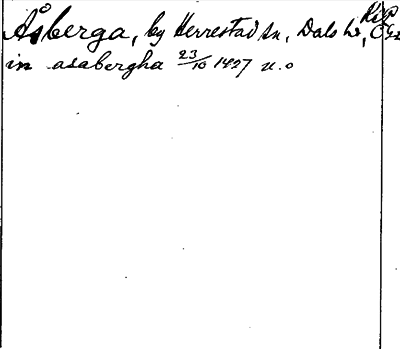 Åsberga, by Herrestad sn, Dals hd,
in asabergha 23/10 1427 u.o